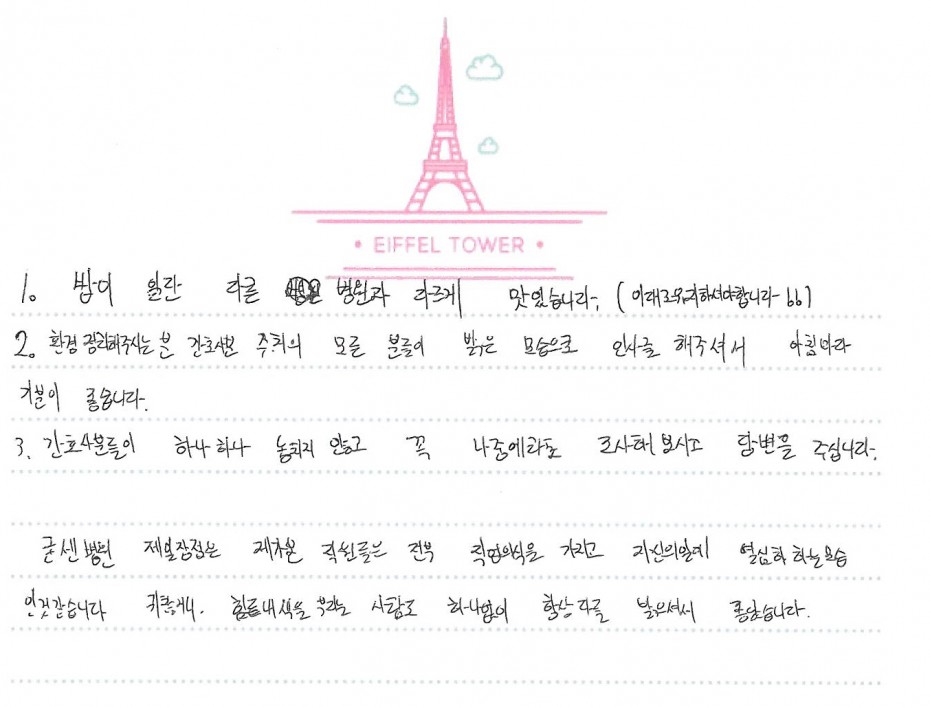 EIFFEL TOWER
1. 밥이 일단 다른 병원과 다르게 맛있습니다. (이대로유지하셔야합니다 bb)
2. 환경 관리해주시는 분 간호사분 주위의 모든 분들이 밝은 모습으로 인사를 해주셔서 아침마다
기분이 좋습니다.
3. 간호사분들이 하나 하나 놓치지 않고 꼭 나중에라도 조사해 보시고 답변을 주십니다.
굳센병원 제일장점은 제가본 직원들은 전부 직업의식을 가지고 자신의일에 열심히 하는모습
인것같습니다 귀찮거나. 힘든내색을 부리는 사람도 하나없이 항상 다들 밝으셔서 좋았습니다.